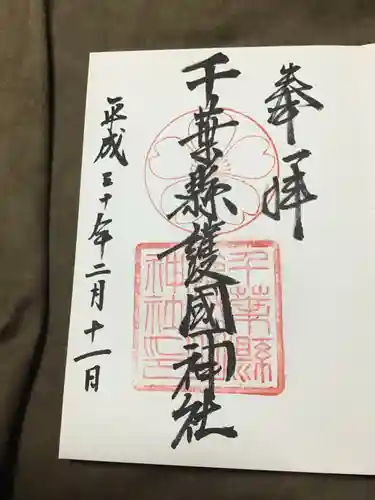 奉拝
千葉縣護國神社
平成三十年二月十一日
千葉縣
神社印